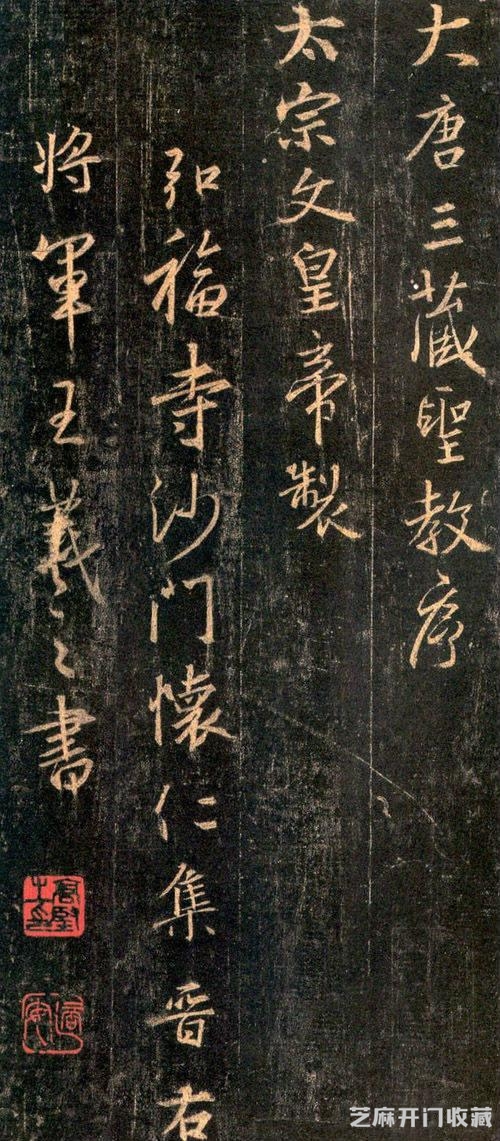 大唐三藏聖教序
太宗文皇帝製
弘福寺沙門懷仁集晉右
將軍王羲之書
芝麻开门收藏